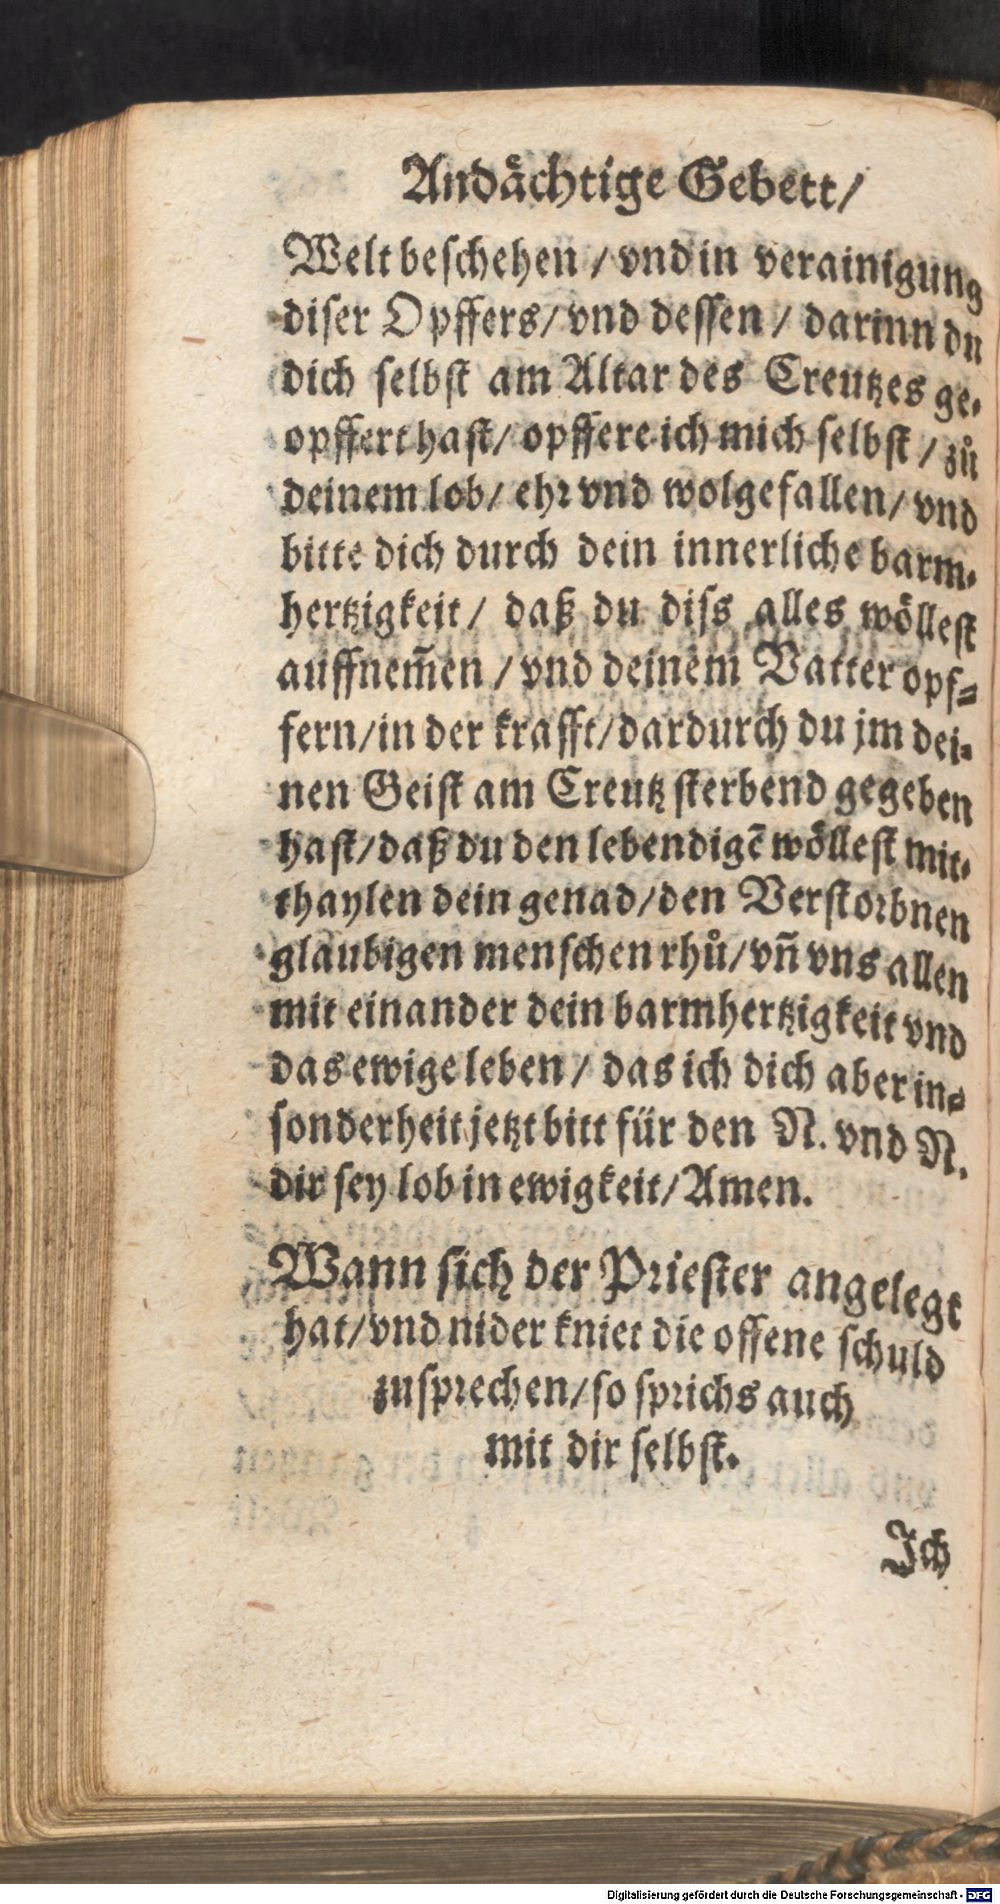 Andaͤchtige Gebett/
Welt beschehen / vnd in verainigung
diser Opffers/ vnd dessen / darinn du
dich selbst am Altar des Creutzes ge-
opffert hast/ opffere ich mich selbst / zuͦ
deinem lob/ ehr vnd wolgefallen/ vnd
bitte dich durch dein innerliche barm-
hertzigkeit / daß du diss alles woͤllest
auffnem̃en / vnd deinem Vatter opf-
fern/in der krafft/dardurch du jm dei-
nen Geist am Creutz sterbend gegeben
hast/daß du den lebendigẽ woͤllest mit-
thaylen dein genad/den Verstorbnen
glaubigen menschen rhuͦ/vñ vns allen
mit einander dein barmhertzigkeit vnd
das ewige leben / das ich dich aber in-
sonderheit jetzt bitt für den N. vnd N.
dir sey lob in ewigkeit/Amen.
Wann sich der Priester angelegt
hat/vnd nider kniet die offene schuld
zusprechen/so sprichs auch
mit dir selbst.
Ich
Digitalisierung gefördert durch die Deutsche Forschungsgemeinschaft - DFG